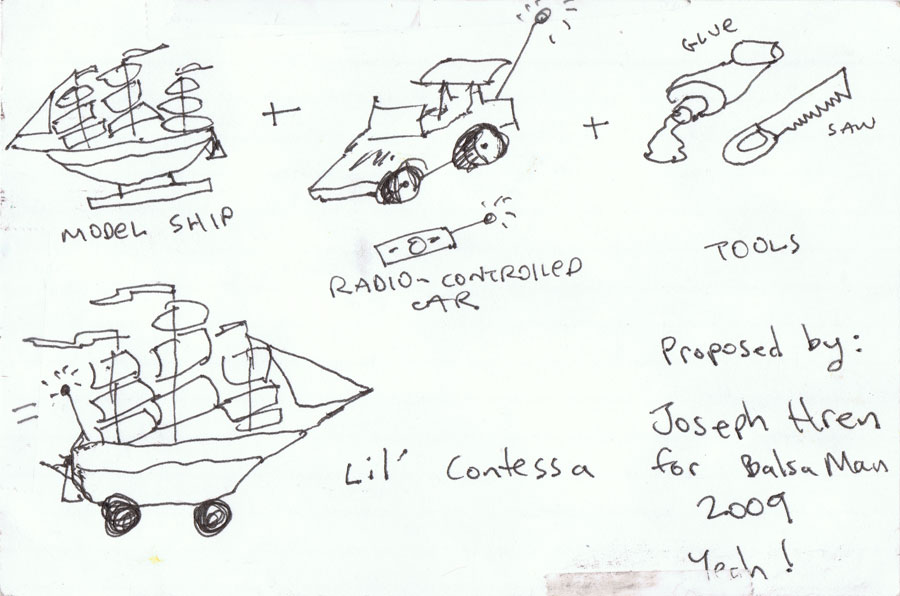 GLUE
SAW
MODEL SHIP
RADIO-CONTROLLED
CAR
TOOLS
Proposed by:
Joseph Hren
for BalsaMan
2009
Yeah!
Lil' Contessa